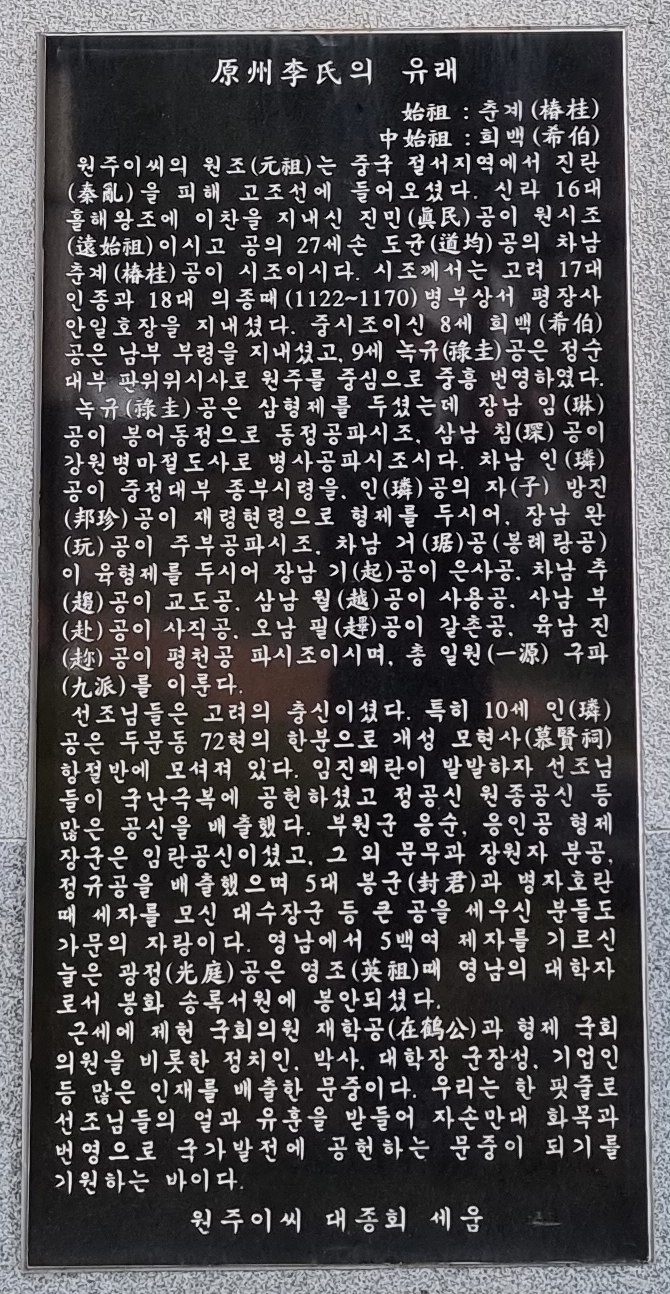 原州李氏의 유래
始祖 : 춘계(椿桂)
中始祖 : 희백(希伯)
원주이씨의 원조(元祖)는 중국 절서지역에서 진란
(秦亂)을 피해 고조선에 들어오셨다. 신라 16대
흘해왕조에 이찬을 지내신 진민(眞民)공이 원시조
(遠始祖)이시고 공의 27세손 도균(道均)공의 차남
춘계(椿桂)공이 시조이시다. 시조께서는 고려 17대
인종과 18대 의종때(1122~1170)병부상서 평장사
안일호장을 지내셨다. 중시조이신 8세 희백(希伯)
공은 남부 부령을 지내셨고, 9세 녹규(祿圭)공은 정순
대부 판위위시사로 원주를 중심으로 중흥 번영하였다.
녹규(祿圭)공은 삼형제를 두셨는데 장남 임(琳)
공이 봉어동정으로 동정공파시조, 삼남 침(琛)공이
강원병마절도사로 병사공파시조시다. 차남 인(璘)
공이 중정대부 종부시령을, 인(璘)공의 자(子) 방진
(邦珍)공이 재령현령으로 형제를 두시어, 장남 완
(玩)공이 주부공파시조, 차남 거(琚)공(봉례랑공)
이 육형제를 두시어 장남 기(起)공이 은사공, 차남 추
(趨)공이 교도공, 삼남 월(越)공이 사용공, 사남 부
(赴)공이 사직공, 오남 필(趩)공이 갈촌공, 육남 진
(趂)공이 평천공 파시조이시며, 총 일원(一源) 구파
(九派)를 이룬다.
선조님들은 고려의 충신이셨다. 특히 10세 인(璘)
공은 두문동 72현의 한분으로 개성 모현사(慕賢祠)
항절반에 모셔져 있다. 임진왜란이 발발하자 선조님
들이 국난극복에 공헌하셨고 정공신 원종공신 등
많은 공신을 배출했다. 부원군 응순, 응인공 형제
장군은 임란공신이셨고, 그 외 문무과 장원자 분공,
정규공을 배출했으며 5대 봉군(封君)과 병자호란
때 세자를 모신 대수장군 등 큰 공을 세우신 분들도
가문의 자랑이다. 영남에서 5백여 제자를 기르신
눌은 광정(光庭)공은 영조(英祖)때 영남의 대학자
로서 봉화 송록서원에 봉안되셨다.
근세에 제헌 국회의원 재학공(在鶴公)과 형제 국회
의원을 비롯한 정치인, 박사, 대학장 군장성, 기업인
등 많은 인재를 배출한 문중이다. 우리는 한 핏줄로
선조님들의 얼과 유훈을 받들어 자손만대 화목과
번영으로 국가발전에 공헌하는 문중이 되기를
기원하는 바이다.
원주이씨 대종회 세움